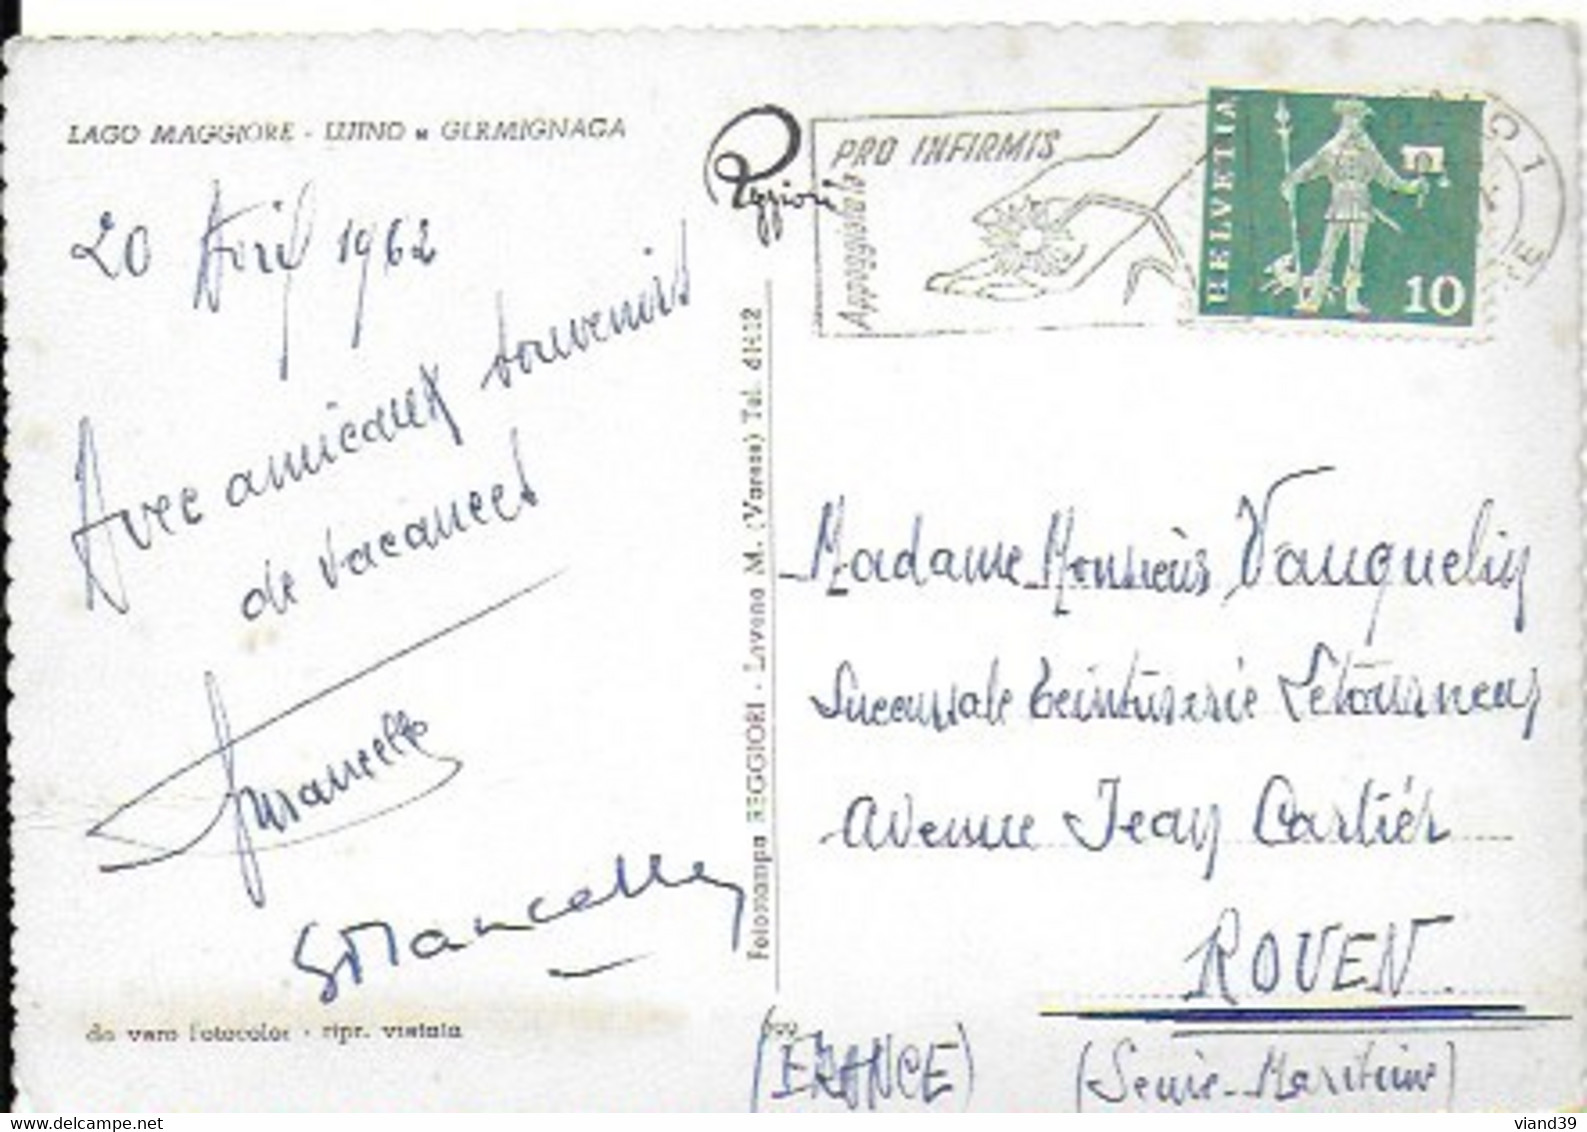 LAGO MAGGIORE - LUINO e GERMIGNAGA
20 Avril 1962
Avec amicaux souvenirs
de vacances
Mancelle
da vero fotocolor - ripr. vietata
Fotostampa REGGIORI - Laveno M. (Varese) Tel.
Reggiori
PRO INFIRMIS
Appoggiatela
HELVETIA
10
Madame Monsieur Vauquelin
Succursale teinturerie Letourneur
Avenue Jean Cartier
ROUEN.
(FRANCE)
(Seine-Maritime)
viand39